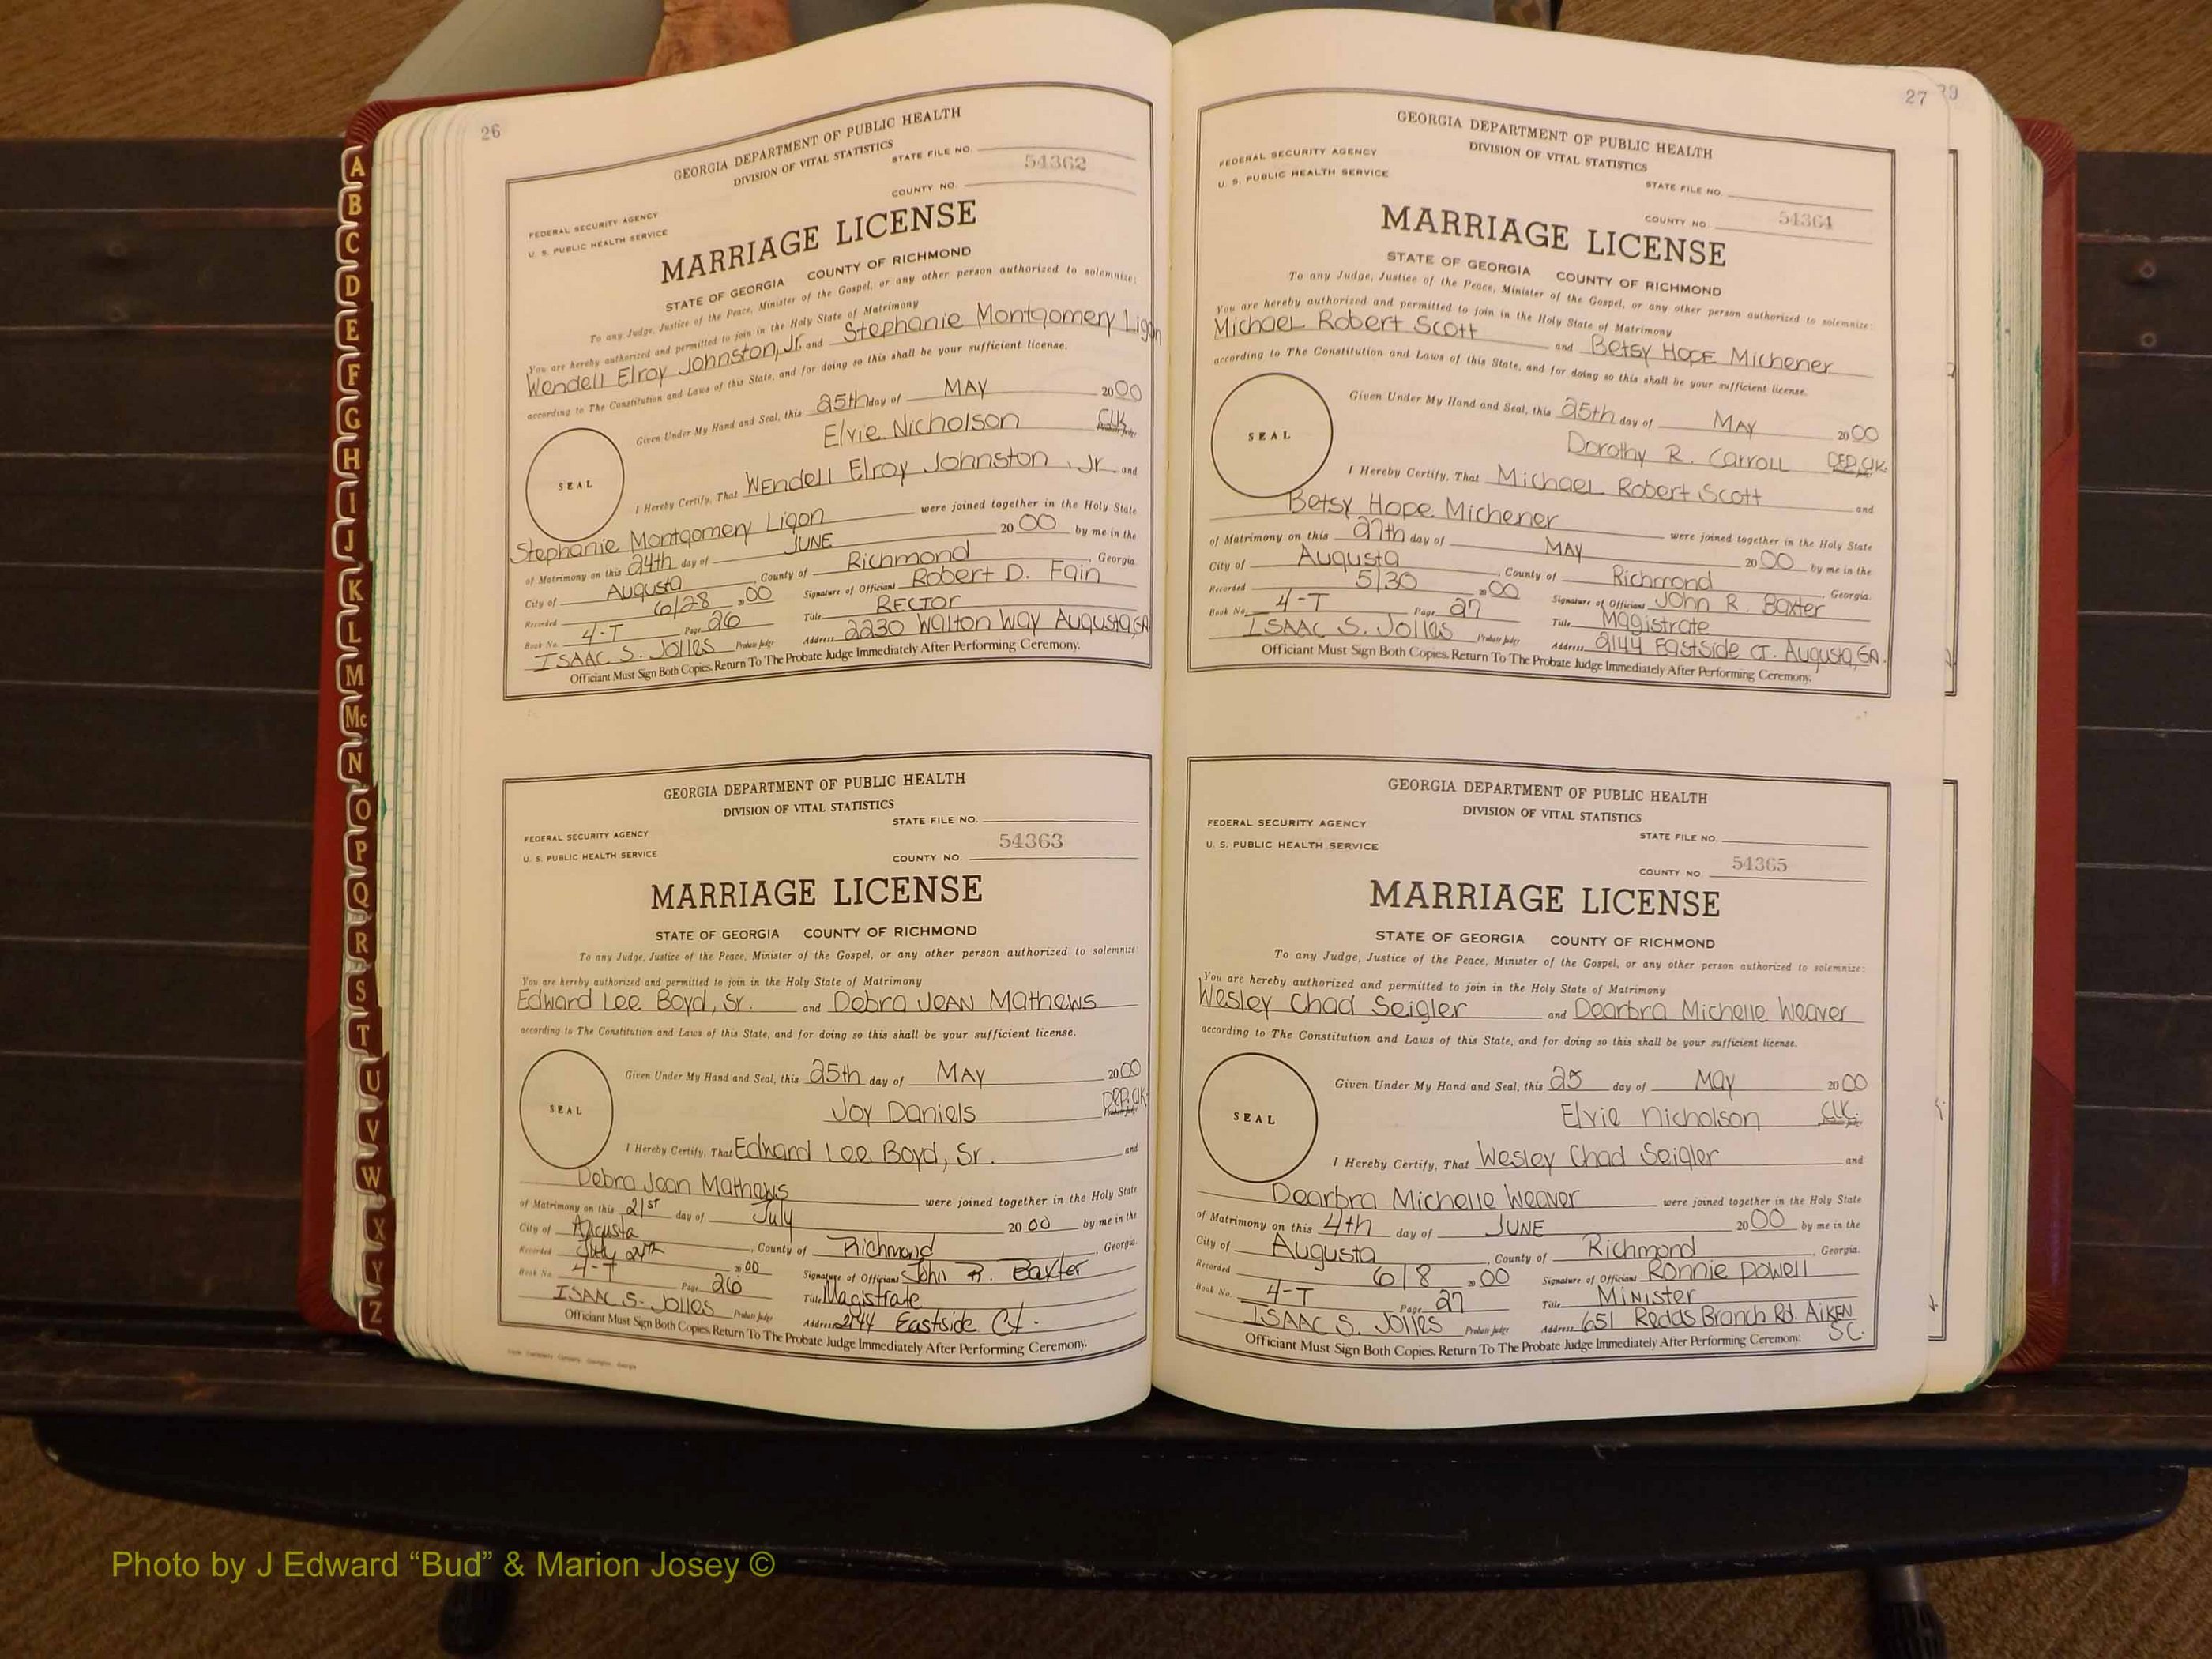 A
B
C
D
E
F
G
H
I
J
K
L
M
Mc
N
O
P
Q
R
S
T
U
V
W
X
Y
Z
26
GEORGIA DEPARTMENT OF PUBLIC HEALTH
DIVISION OF VITAL STATISTICS
STATE FILE NO.
54362
COUNTY NO.
FEDERAL SECURITY AGENCY
U. S. PUBLIC HEALTH SERVICE
MARRIAGE LICENSE
STATE OF GEORGIA COUNTY OF RICHMOND
To any Judge, Justice of the Peace, Minister of the Gospel, or any other person authorized to solemnize:
You are hereby authorized and permitted to join in the Holy State of Matrimony
Wendell Elroy Johnston, Jr. and Stephanie Montgomery Ligon
according to The Constitution and Laws of this State, and for doing so this shall be your sufficient license.
Given Under My Hand and Seal, this 25th day of MAY 2000
Elvie Nicholson CLK.
SEAL
I Hereby Certify, That Wendell Elroy Johnston, Jr. and
Stephanie Montgomery Ligon were joined together in the Holy State
of Matrimony on this 24th day of JUNE 2000 by me in the
City of Augusta, County of Richmond, Georgia
Recorded 6/28 2000 Signature of Officiant Robert D. Fain
Book No. 4-T Page 26 Title RECTOR
ISAAC S. Jolles Probate Judge Address 2230 Walton Way Augusta, GA
Officiant Must Sign Both Copies. Return To The Probate Judge Immediately After Performing Ceremony.
GEORGIA DEPARTMENT OF PUBLIC HEALTH
DIVISION OF VITAL STATISTICS
STATE FILE NO.
FEDERAL SECURITY AGENCY
54363
U. S. PUBLIC HEALTH SERVICE
COUNTY NO.
MARRIAGE LICENSE
STATE OF GEORGIA COUNTY OF RICHMOND
To any Judge, Justice of the Peace, Minister of the Gospel, or any other person authorized to solemnize:
You are hereby authorized and permitted to join in the Holy State of Matrimony
Edward Lee Boyd, Sr. and Debra JEAN Mathews
according to The Constitution and Laws of this State, and for doing so this shall be your sufficient license.
Given Under My Hand and Seal, this 25th day of MAY 2000
Joy Daniels DEP. CLK.
SEAL
I Hereby Certify, That Edward Lee Boyd, Sr. and
Debra Jean Mathews were joined together in the Holy State
of Matrimony on this 21st day of July 2000 by me in the
City of Augusta, County of Richmond, Georgia.
Recorded July 24th 2000 Signature of Officiant John R. Baxter
Book No. 4-T Page 26 Title Magistrate
ISAAC S. Jolles Probate Judge Address 2144 Eastside Ct.
Officiant Must Sign Both Copies. Return To The Probate Judge Immediately After Performing Ceremony.
27
GEORGIA DEPARTMENT OF PUBLIC HEALTH
DIVISION OF VITAL STATISTICS
FEDERAL SECURITY AGENCY
U. S. PUBLIC HEALTH SERVICE
STATE FILE NO.
COUNTY NO. 54364
MARRIAGE LICENSE
STATE OF GEORGIA COUNTY OF RICHMOND
To any Judge, Justice of the Peace, Minister of the Gospel, or any other person authorized to solemnize:
You are hereby authorized and permitted to join in the Holy State of Matrimony
Michael Robert Scott and Betsy Hope Michener
according to The Constitution and Laws of this State, and for doing so this shall be your sufficient license.
Given Under My Hand and Seal, this 25th day of MAY 2000
Dorothy R. Carroll DEP. CLK.
SEAL
I Hereby Certify, That Michael Robert Scott and
Betsy Hope Michener were joined together in the Holy State
of Matrimony on this 27th day of MAY 2000 by me in the
City of Augusta, County of Richmond, Georgia.
Recorded 5/30 2000 Signature of Officiant John R. Baxter
Book No. 4-T Page 27 Title Magistrate
ISAAC S. Jolles Probate Judge Address 2144 Eastside CT. Augusta, GA.
Officiant Must Sign Both Copies. Return To The Probate Judge Immediately After Performing Ceremony.
GEORGIA DEPARTMENT OF PUBLIC HEALTH
DIVISION OF VITAL STATISTICS
FEDERAL SECURITY AGENCY
STATE FILE NO.
U. S. PUBLIC HEALTH SERVICE
COUNTY NO. 54365
MARRIAGE LICENSE
STATE OF GEORGIA COUNTY OF RICHMOND
To any Judge, Justice of the Peace, Minister of the Gospel, or any other person authorized to solemnize:
You are hereby authorized and permitted to join in the Holy State of Matrimony
Wesley Chad Seigler and Dearbra Michelle Weaver
according to The Constitution and Laws of this State, and for doing so this shall be your sufficient license.
Given Under My Hand and Seal, this 25 day of May 2000
Elvie Nicholson CLK.
SEAL
I Hereby Certify, That Wesley Chad Seigler and
Dearbra Michelle Weaver were joined together in the Holy State
of Matrimony on this 4th day of JUNE 2000 by me in the
City of Augusta, County of Richmond, Georgia.
Recorded 6/8 2000 Signature of Officiant Ronnie Powell
Book No. 4-T Page 27 Title Minister
ISAAC S. Jolles Probate Judge Address 651 Redds Branch Rd. AIKEN SC.
Officiant Must Sign Both Copies. Return To The Probate Judge Immediately After Performing Ceremony.
Photo by J Edward “Bud” & Marion Josey ©